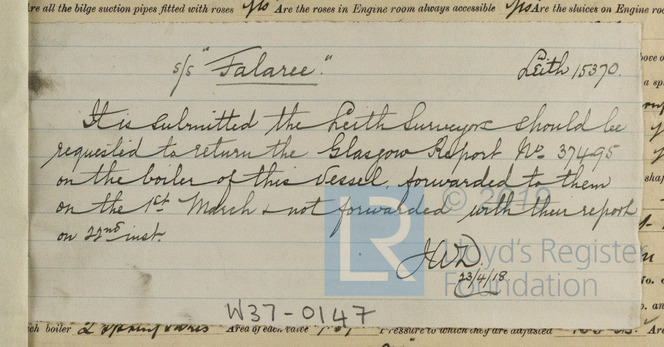 re all the bilge suction pipes fitted with roses Yes Are the roses in Engine room always accessible Yes Are the sluices on Engine roo
s/s "Falaree."
Leith 15370.
It is submitted the Leith Surveyors should be
requested to return the Glasgow Report No. 37495
on the boiler of this vessel, forwarded to them
on the 1st March & not forwarded with their report
on 22nd inst.
JWD
23/4/18
LR
© 2019
Lloyd's Register
Foundation
W37-0147
ch boiler 2 spring valves Area of each valve Pressure to which they are adjusted Are